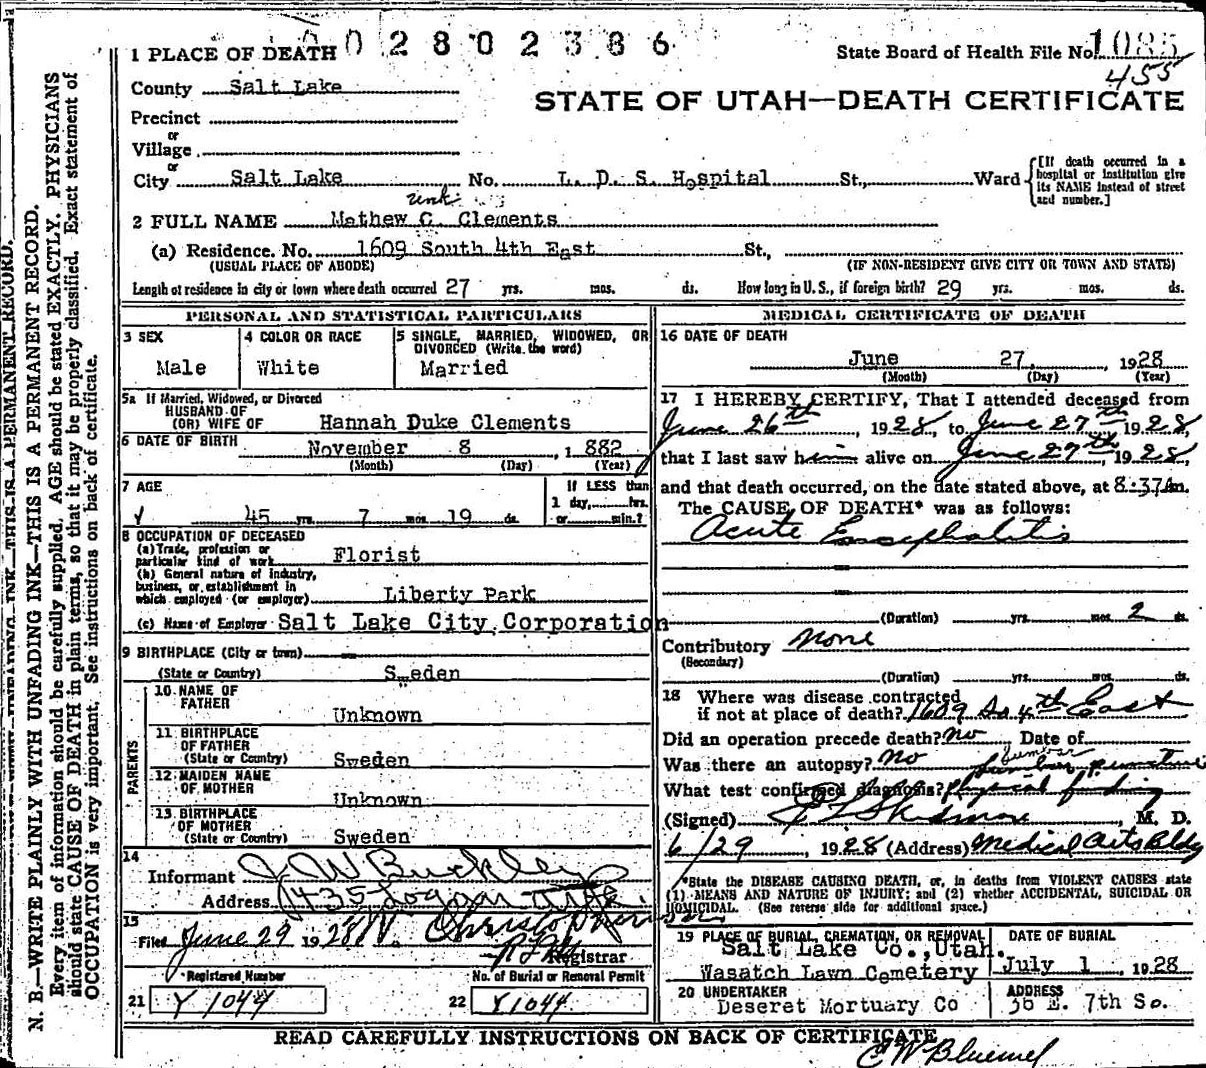 0 0 2 8 0 2 3 8 6
1 PLACE OF DEATH
State Board of Health File No. 1085
455
County Salt Lake
STATE OF UTAH—DEATH CERTIFICATE
Precinct
or
Village
or
City Salt Lake No. L. D. S. Hospital St., Ward
[If death occurred in a hospital or institution give its NAME instead of street and number.]
2 FULL NAME Mathew C. Clements
(a) Residence. No. 1609 South 4th East St.,
(USUAL PLACE OF ABODE) (IF NON-RESIDENT GIVE CITY OR TOWN AND STATE)
Length of residence in city or town where death occurred 27 yrs. mos. ds. How long in U. S., if foreign birth? 29 yrs. mos. ds.
PERSONAL AND STATISTICAL PARTICULARS
3 SEX
Male
4 COLOR OR RACE
White
5 SINGLE, MARRIED, WIDOWED, OR
DIVORCED (Write the word)
Married
5a If Married, Widowed, or Divorced
HUSBAND OF
(OR) WIFE OF Hannah Duke Clements
6 DATE OF BIRTH November 8, 1 882
(Month) (Day) (Year)
7 AGE
45 yrs. 7 mos. 19 ds.
If LESS than
1 day, hrs.
or min.?
8 OCCUPATION OF DECEASED
(a) Trade, profession or
particular kind of work Florist
(b) General nature of industry,
business, or establishment in
which employed (or employer) Liberty Park
(c) Name of Employer Salt Lake City Corporation
9 BIRTHPLACE (City or town)
(State or Country) Sweden
PARENTS
10 NAME OF
FATHER
Unknown
11 BIRTHPLACE
OF FATHER
(State or Country) Sweden
12 MAIDEN NAME
OF MOTHER
Unknown
13 BIRTHPLACE
OF MOTHER
(State or Country) Sweden
14
Informant J. W. Buckley
Address 1435 Logan Ave
15
Filed June 29 1928 W. Christopherson
Registrar
Registered Number
No. of Burial or Removal Permit
21 Y 1044
22 Y 1044
MEDICAL CERTIFICATE OF DEATH
16 DATE OF DEATH
June 27, 1928
(Month) (Day) (Year)
17 I HEREBY CERTIFY, That I attended deceased from
June 26th, 1928, to June 27th, 1928,
that I last saw him alive on June 27th, 1928,
and that death occurred, on the date stated above, at 8:37 Am.
The CAUSE OF DEATH* was as follows:
Acute Encephalitis
(Duration) yrs. mos. 2 ds.
Contributory None
(Secondary)
(Duration) yrs. mos. ds.
18 Where was disease contracted
if not at place of death? 1609 So 4th East
Did an operation precede death? No Date of
Was there an autopsy? No
Lumbar
Lumbar puncture
What test confirmed diagnosis? Physical finding
(Signed) Skidmore, M. D.
6/29 1928 (Address) Medical Arts Bldg
*State the DISEASE CAUSING DEATH, or, in deaths from VIOLENT CAUSES state
(1) MEANS AND NATURE OF INJURY; and (2) whether ACCIDENTAL, SUICIDAL OR
HOMICIDAL. (See reverse side for additional space.)
19 PLACE OF BURIAL, CREMATION, OR REMOVAL
Salt Lake Co., Utah.
Wasatch Lawn Cemetery
DATE OF BURIAL
July 1, 1928
20 UNDERTAKER
Deseret Mortuary Co
ADDRESS
36 E. 7th So.
READ CAREFULLY INSTRUCTIONS ON BACK OF CERTIFICATE
N. B.—WRITE PLAINLY WITH UNFADING INK—THIS IS A PERMANENT RECORD.
Every item of information should be carefully supplied. AGE should be stated EXACTLY. PHYSICIANS
should state CAUSE OF DEATH in plain terms, so that it may be properly classified. Exact statement of
OCCUPATION is very important. See instructions on back of certificate.